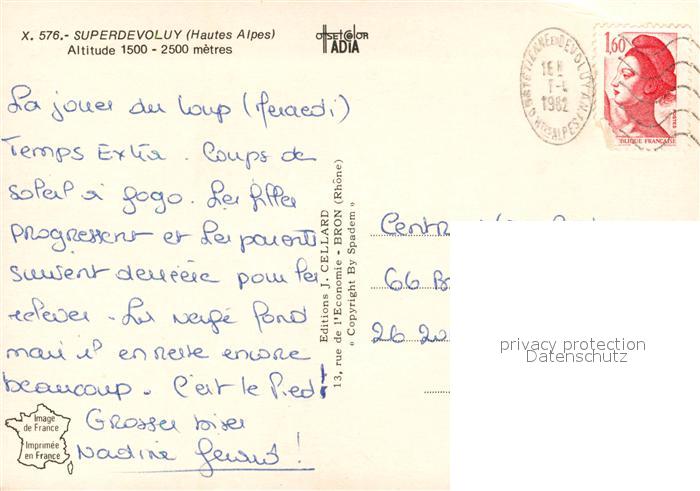 X. 576.- SUPERDEVOLUY (Hautes Alpes)
Altitude 1500 - 2500 mètres
offsetcolor
ADIA
ST ETIENNE EN DEVOLUY
16 H
1982
HTES ALPES
1,60
POSTES
BLIQUE FRANÇAISE
La joue du Loup (Mercredi)
Temps Extra. Coups de
soleil à gogo. Les filles
progressent et les parents
suivent derrière pour les
relever. La neige fond
mais il en reste encore
beaucoup. C'est le Pied!
Grosses bises
Nadine
Image
de France
Imprimée
en France
Editions J. CELLARD
13, rue de l'Economie - BRON (Rhône)
« Copyright By Spadem »
Centr
66 B
26 20
privacy protection
Datenschutz